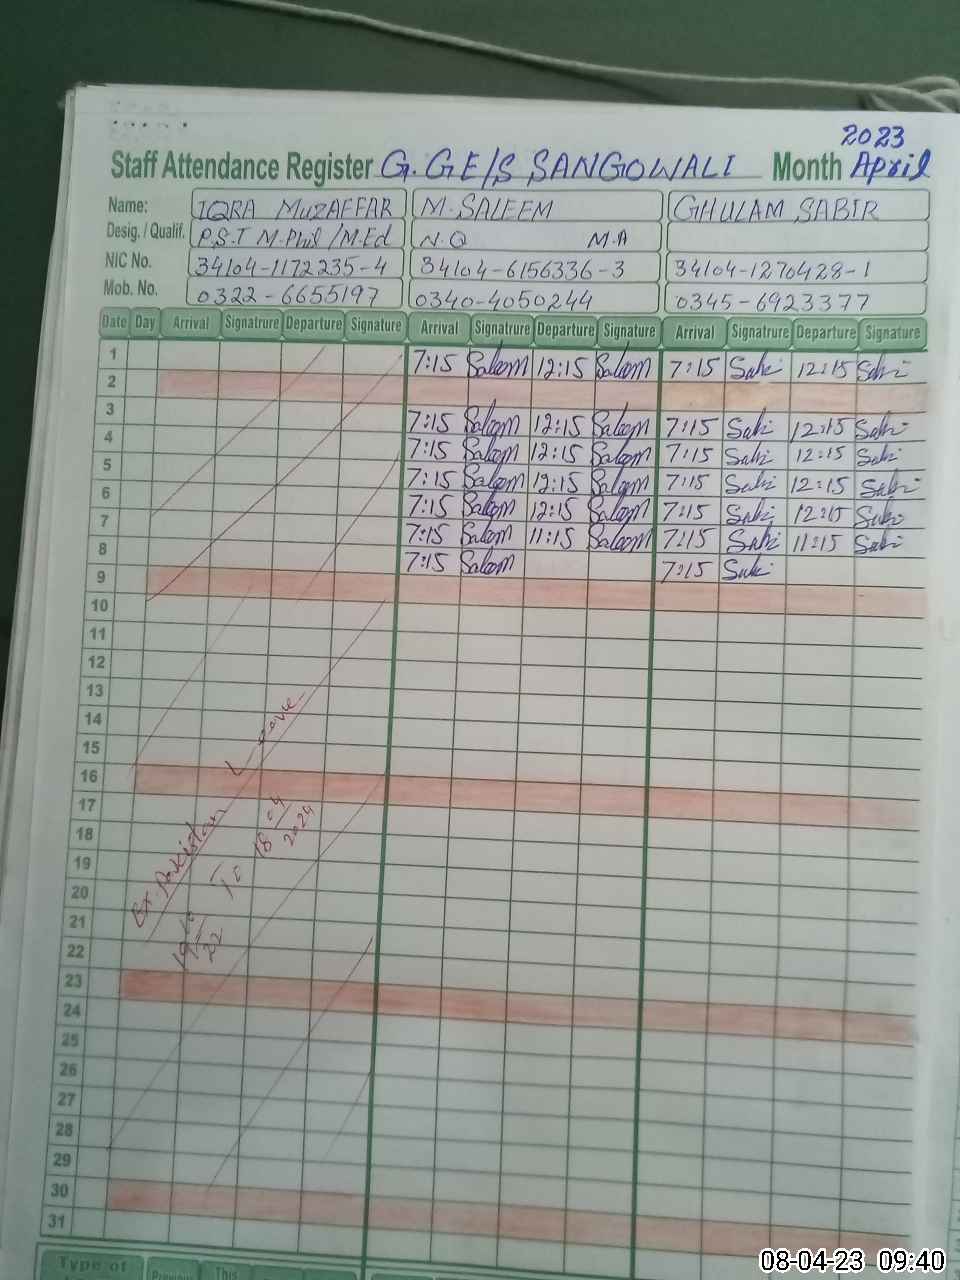 2023
Staff Attendance Register G.GE/S SANGOWALI Month April
Name: IQRA MUZAFFAR M.SALEEM GHULAM SABIR
Desig. / Qualif. P.S.T M.Phil /M.Ed N.Q M.A
NIC No. 34104-1172235-4 34104-6156336-3 34104-1270428-1
Mob. No. 0322-6655197 0340-4050244 0345-6923377
Date Day Arrival Signatrure Departure Signature Arrival Signatrure Departure Signature Arrival Signatrure Departure Signature
1 7:15 Saleem 12:15 Saleem 7:15 Sabi 12:15 Sabi
2
3 7:15 Saleem 12:15 Saleem 7:15 Sabi 12:15 Sabi
4 7:15 Saleem 12:15 Saleem 7:15 Sabi 12:15 Sabi
5 7:15 Saleem 12:15 Saleem 7:15 Sabi 12:15 Sabi
6 7:15 Saleem 12:15 Saleem 7:15 Sabi 12:15 Sabi
7 7:15 Saleem 11:15 Saleem 7:15 Sabi 11:15 Sabi
8 7:15 Saleem 7:15 Sabi
9
10
11
12
13
14
15
16
17
18
19
20
21
22
23
24
25
26
27
28
29
30
31
Ex. Pakistan Leave
19/10/22 To 18/04/2024
Type of
Previous This
08-04-23 09:40